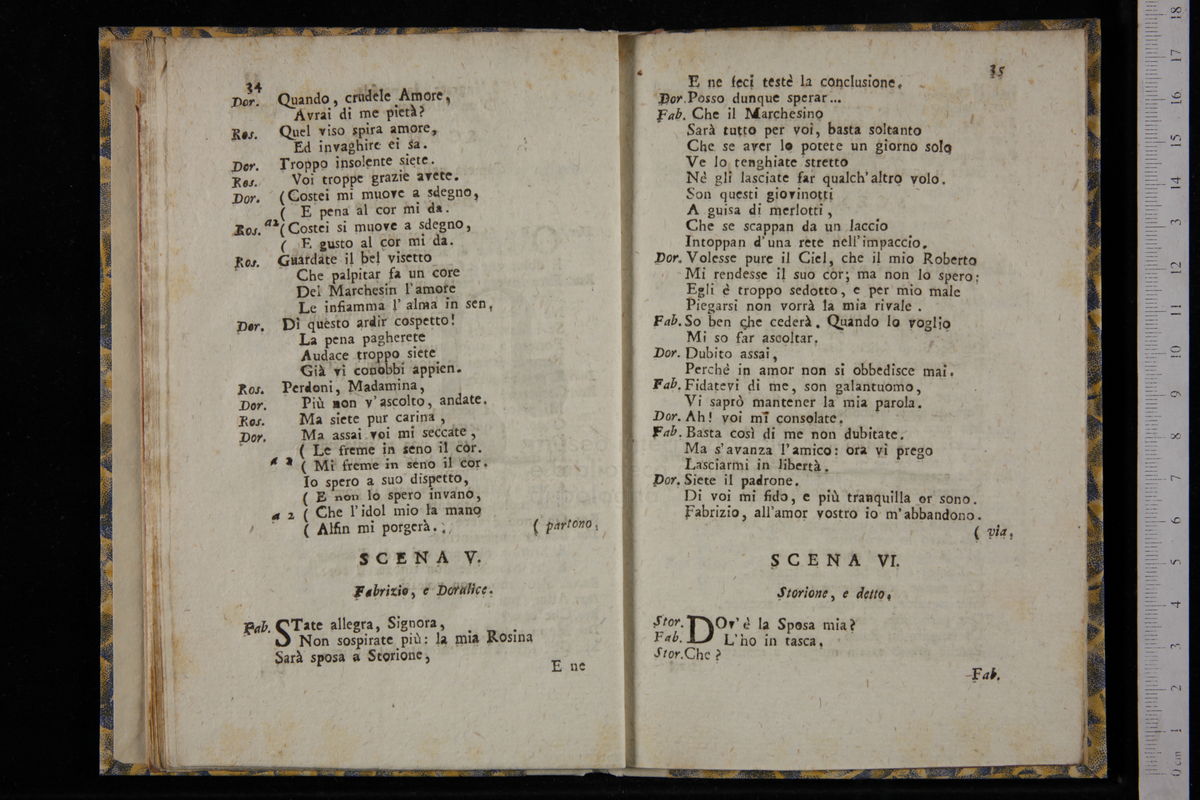 34
Dor. Quando, crudele Amore,
Avrai di me pietà?
Ros. Quel viso spira amore,
Ed invaghire ei sa.
Dor. Troppo insolente siete.
Ros. Voi troppe grazie avete.
Dor. (Costei mi muove a sdegno,
( E pena al cor mi da.
Ros. a2 (Costei si muove a sdegno,
( E gusto al cor mi da.
Ros. Guardate il bel visetto
Che palpitar fa un core
Del Marchesin l'amore
Le infiamma l'alma in sen,
Dor. Di questo ardir cospetto!
La pena pagherete
Audace troppo siete
Già vi conobbi appien.
Ros. Perdoni, Madamina,
Dor. Più non v'ascolto, andate.
Ros. Ma siete pur carina,
Dor. Ma assai voi mi seccate,
( Le freme in seno il cor.
a 2 ( Mi freme in seno il cor.
Io spero a suo dispetto,
( E non lo spero invano,
a 2 ( Che l'idol mio la mano
( Alfin mi porgerà.
( partono,
SCENA V.
Fabrizio, e Doralice.
Fab. STate allegra, Signora,
Non sospirate più: la mia Rosina
Sarà sposa a Storione,
E ne
35
E ne feci testè la conclusione.
Dor. Posso dunque sperar...
Fab. Che il Marchesino
Sarà tutto per voi, basta soltanto
Che se aver lo potete un giorno solo
Ve lo tenghiate stretto
Nè gli lasciate far qualch'altro volo.
Son questi giovinotti
A guisa di merlotti,
Che se scappan da un laccio
Intoppan d'una rete nell'impaccio.
Dor. Volesse pure il Ciel, che il mio Roberto
Mi rendesse il suo cor; ma non lo spero:
Egli è troppo sedotto, e per mio male
Piegarsi non vorrà la mia rivale.
Fab. So ben che cederà. Quando lo voglio
Mi so far ascoltar.
Dor. Dubito assai,
Perchè in amor non si obbedisce mai.
Fab. Fidatevi di me, son galantuomo,
Vi saprò mantener la mia parola.
Dor. Ah! voi mi consolate.
Fab. Basta così di me non dubitate.
Ma s'avanza l'amico: ora vi prego
Lasciarmi in libertà.
Dor. Siete il padrone.
Di voi mi fido, e più tranquilla or sono.
Fabrizio, all'amor vostro io m'abbandono.
( via,
SCENA VI.
Storione, e detto.
Stor. DOv'è la Sposa mia?
Fab. L'ho in tasca.
Stor. Che?
Fab.
0 cm 1 2 3 4 5 6 7 8 9 10 11 12 13 14 15 16 17 18